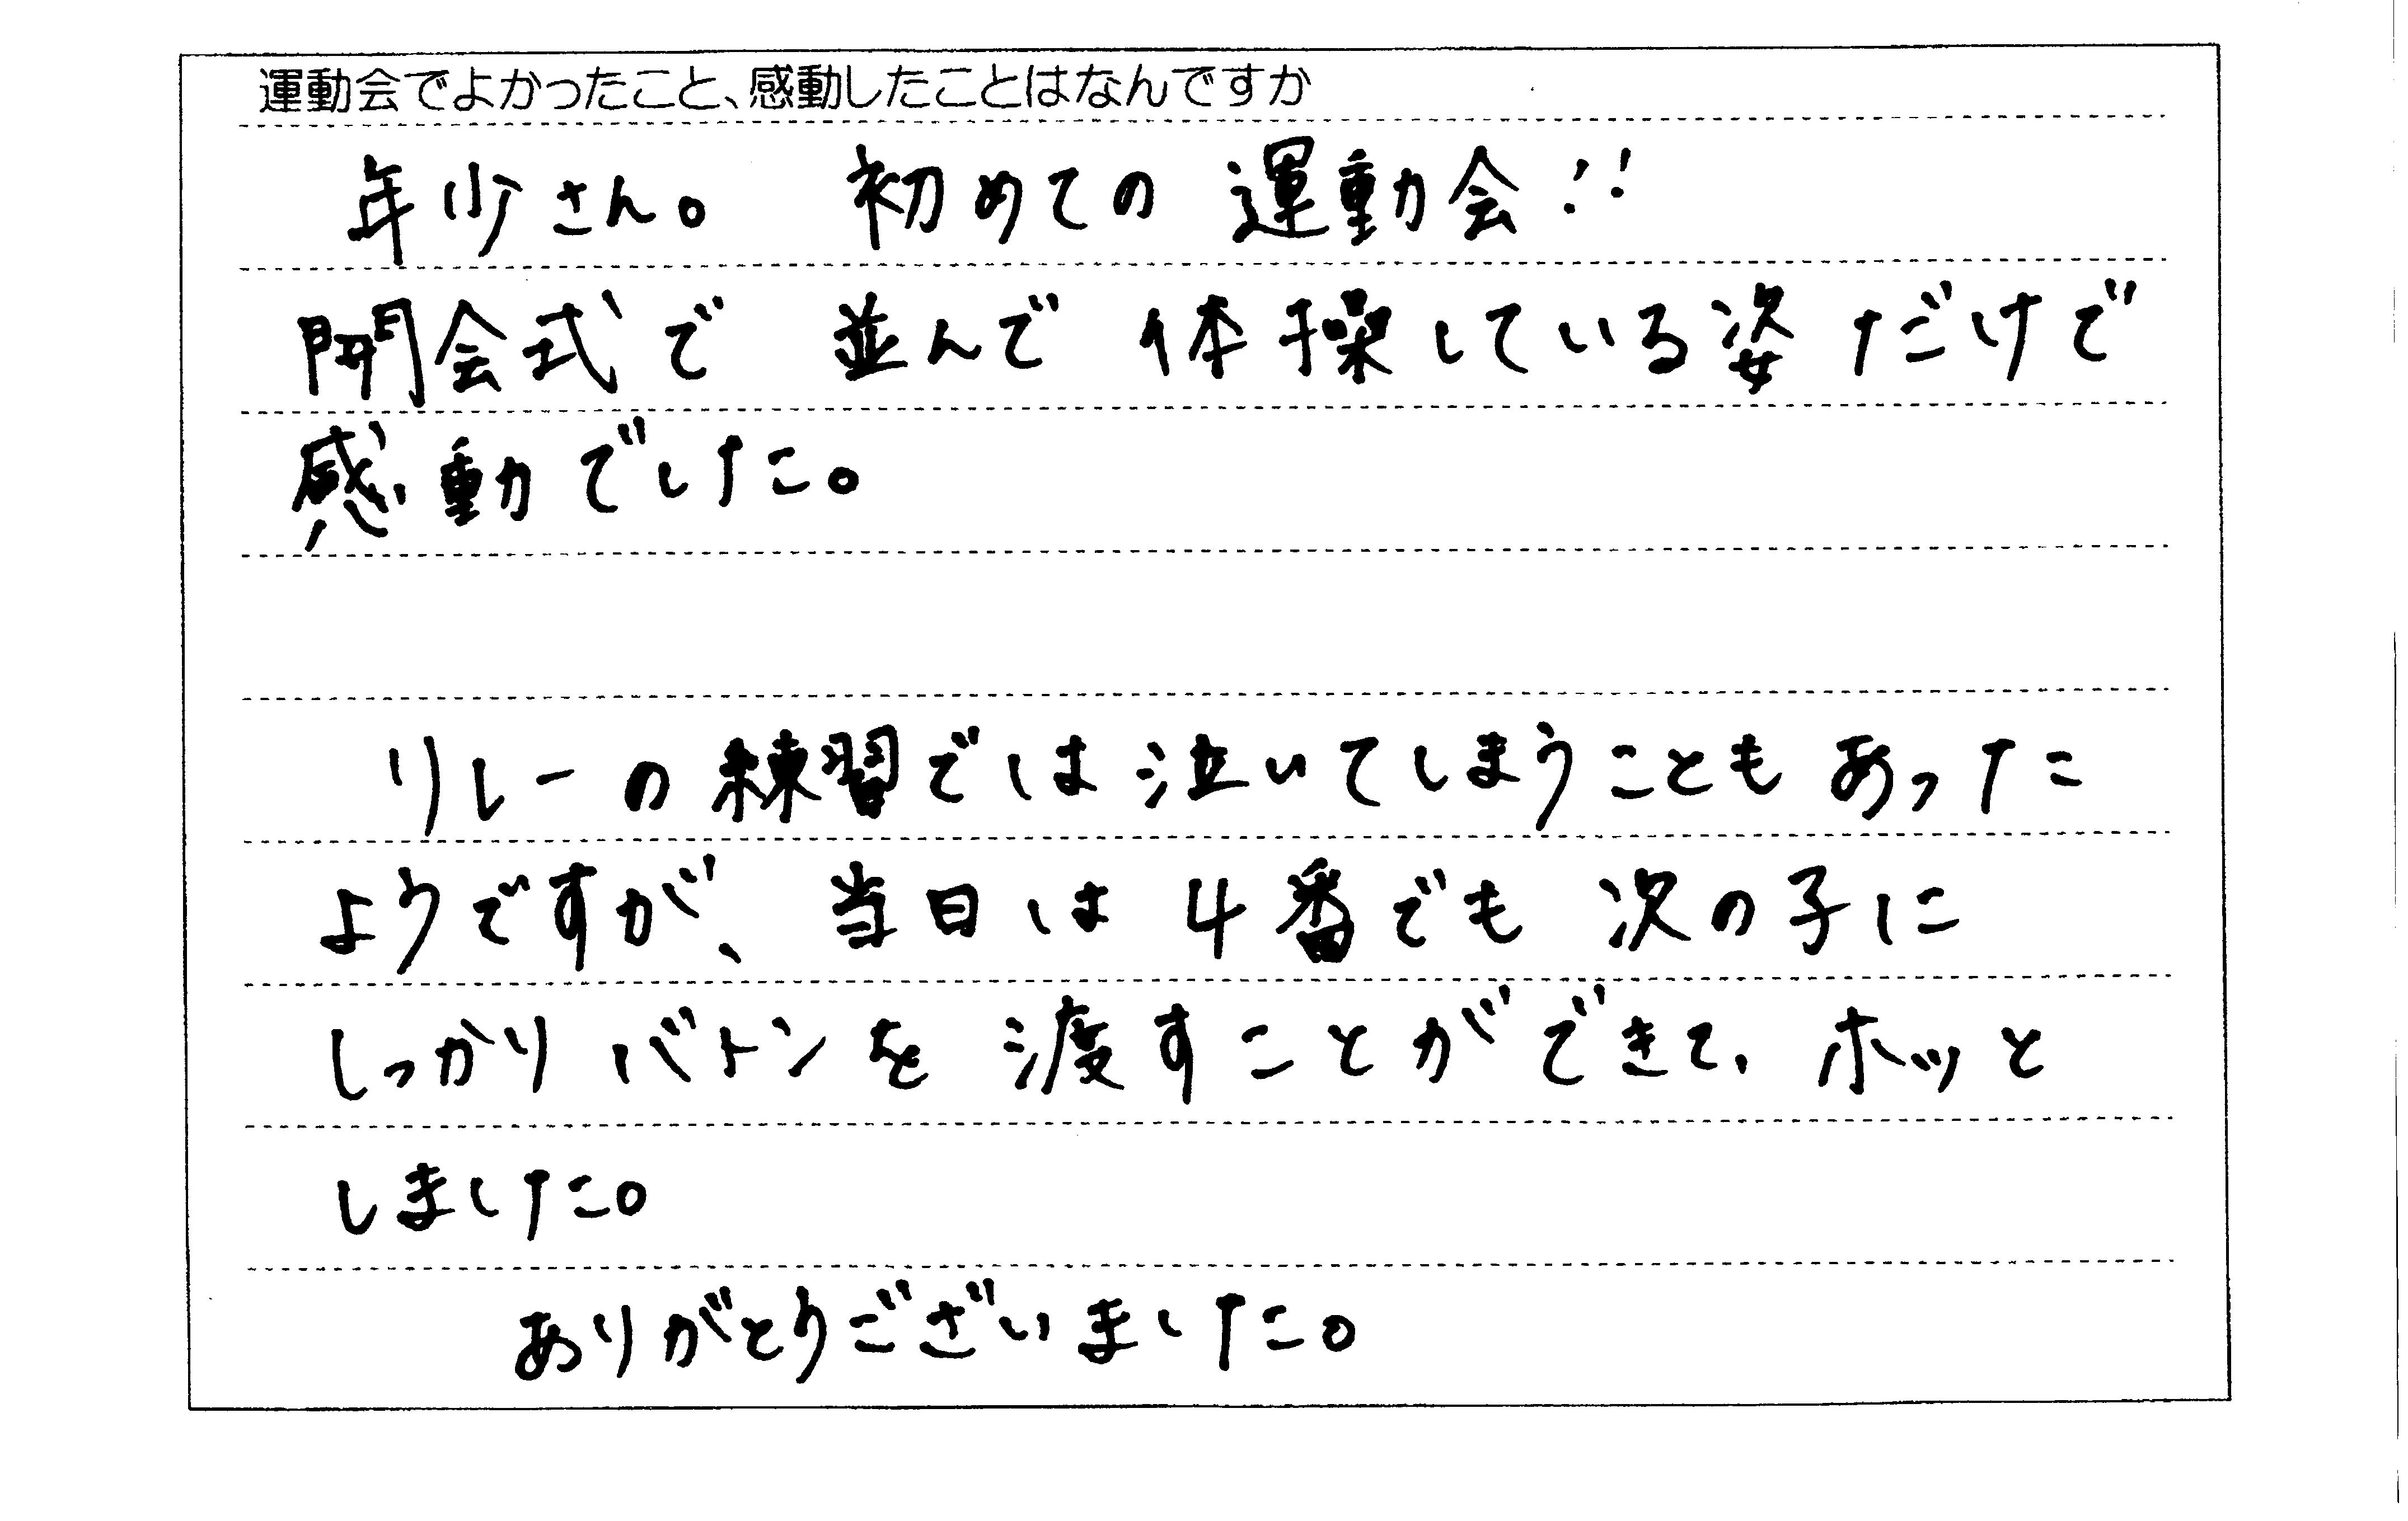 運動会でよかったこと、感動したことはなんですか
年少さん。 初めての 運動会!!
開会式で 並んで 体操している姿だけで
感動でした。
リレーの練習では泣いてしまうこともあった
ようですが、当日は 4番でも 次の子に
しっかり バトンを 渡すことができて、ホッと
しました。
ありがとうございました。